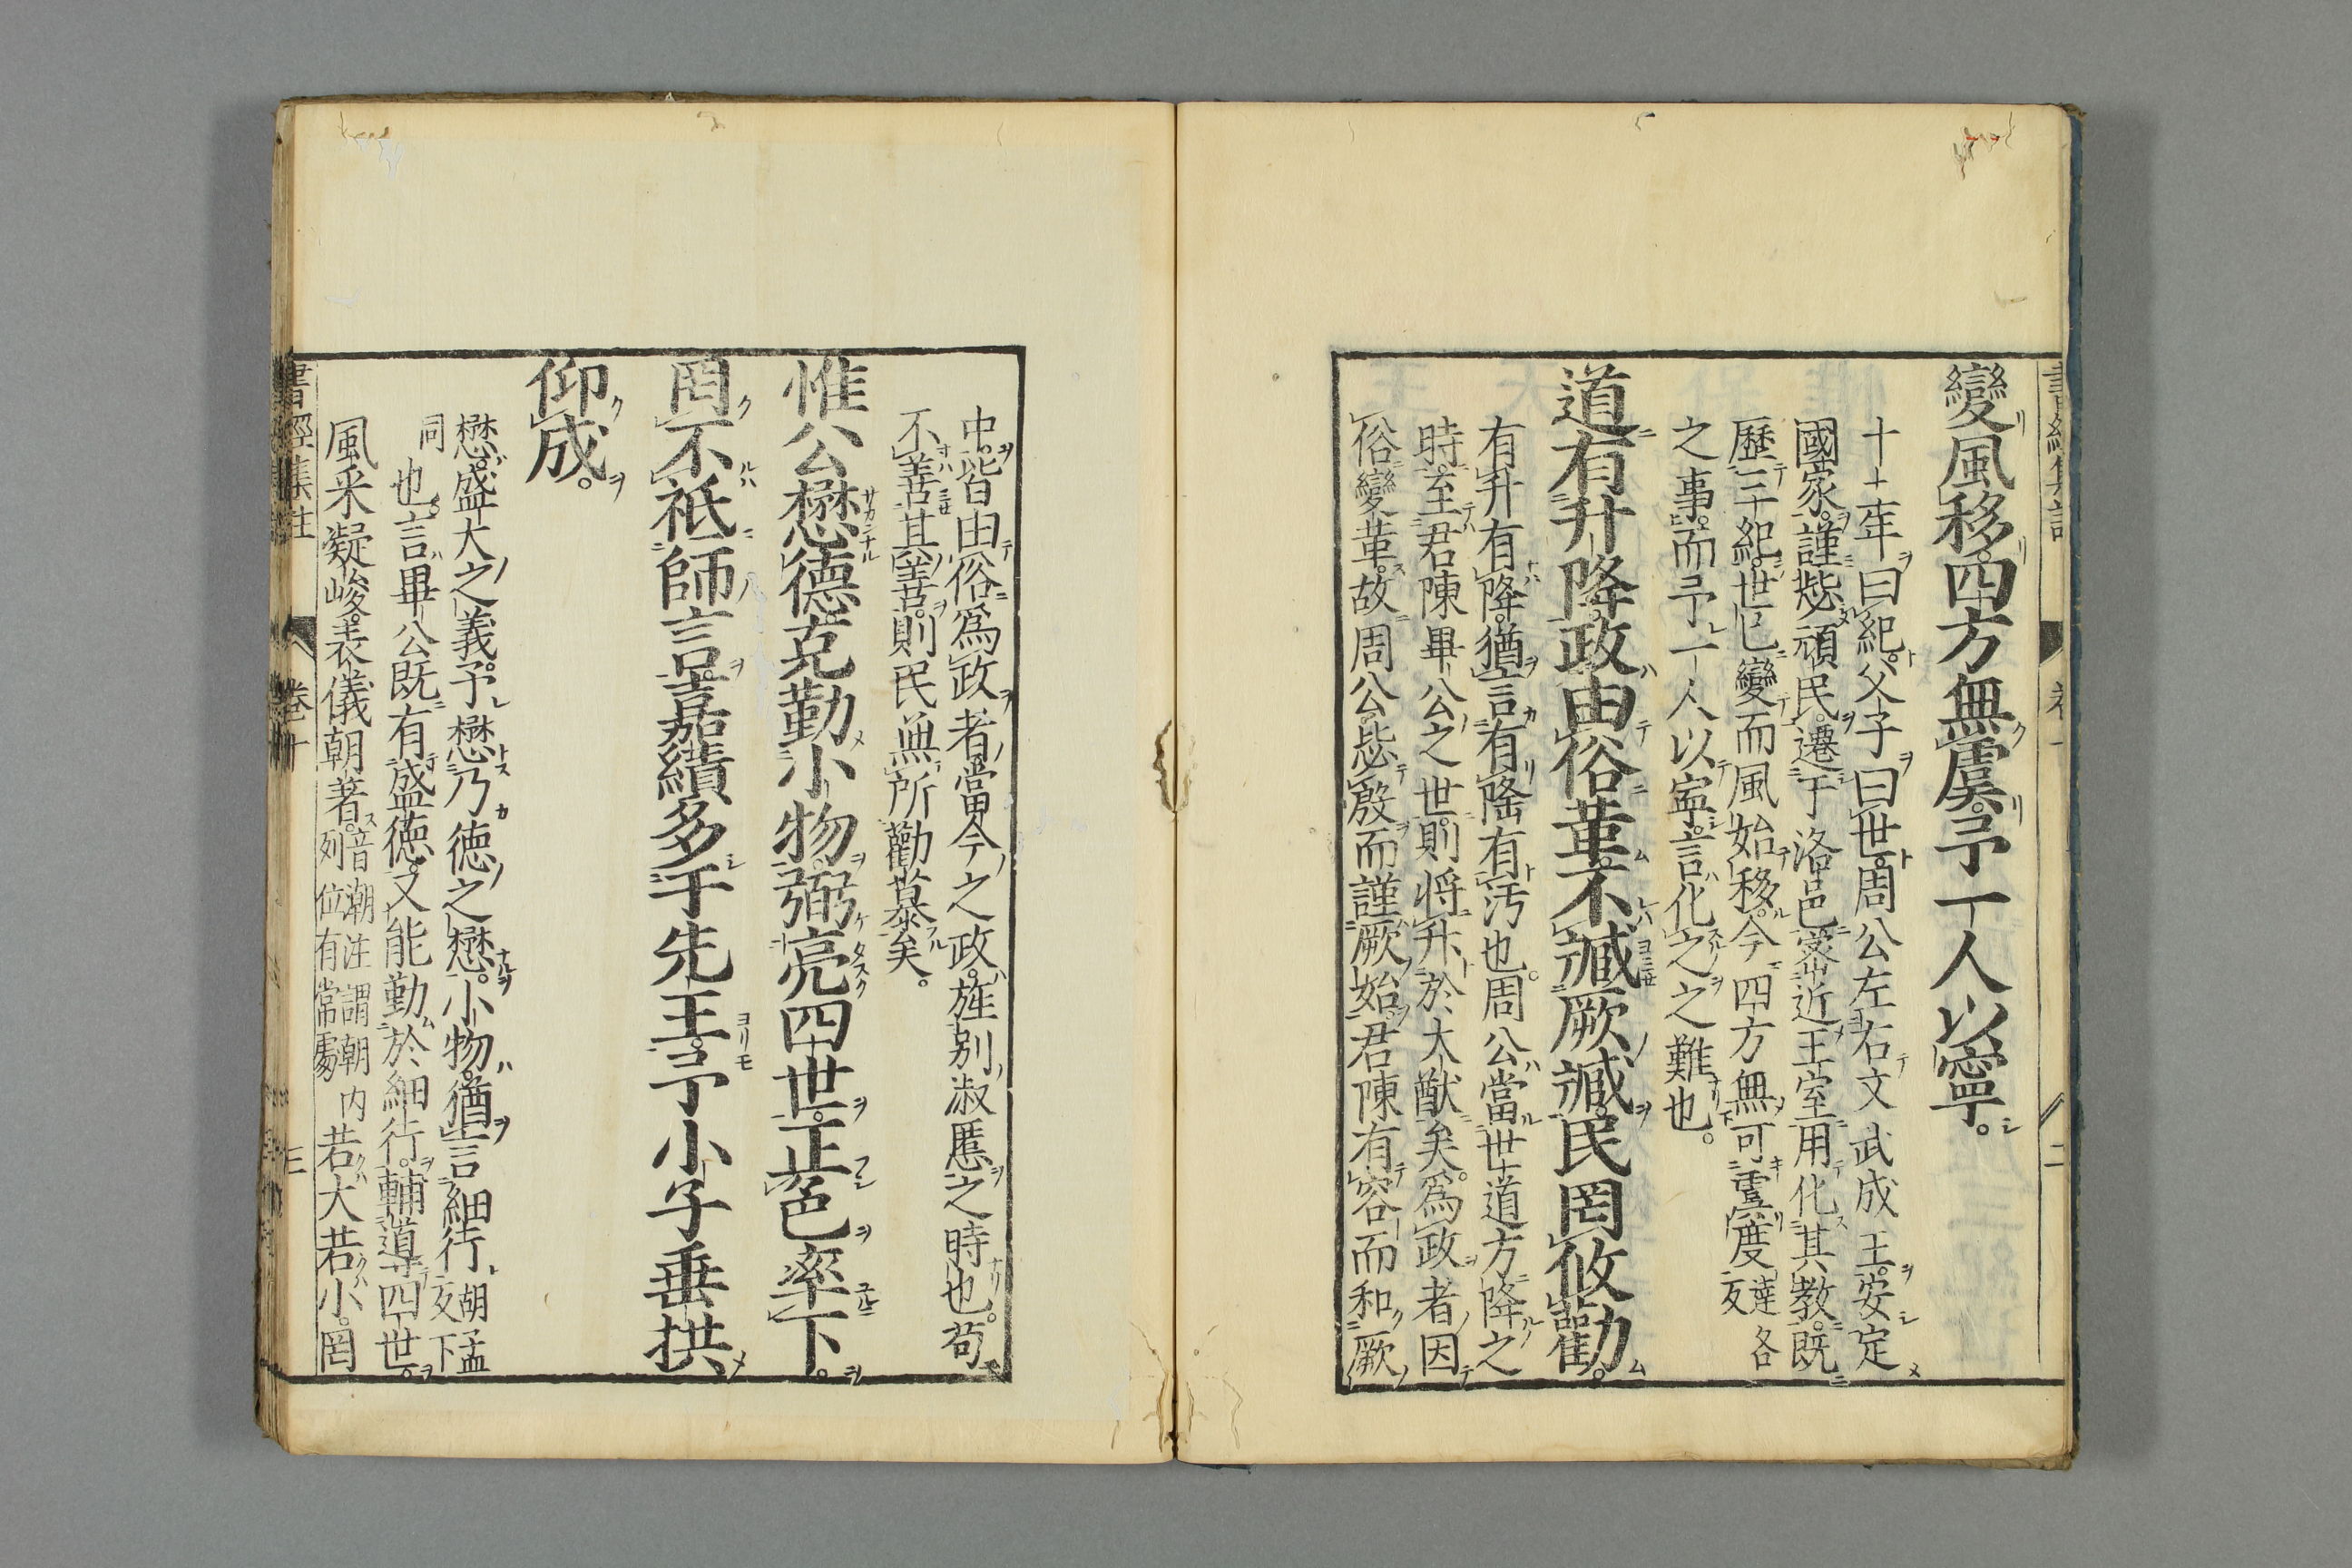 變風移四方無虞予一人以寧。
十二年曰紀父子曰世周公左右文武成王安定
國家謹毖頑民遷于洛邑密近王室用化其教既
歷三紀世已變而風始移今四方無可虞度達各反
之事而予一人以寧言化之之難也。
道有升降政由俗革不臧厥臧民罔攸勸。
有升有降猶言有隆有汚也。周公當世道方降之
時至君陳畢公之世則將升於大猷矣爲政者因
俗變革故周公毖殷而謹厥始君陳有容而和厥
中皆由俗爲政者當今之政旌別淑慝之時也。苟
不善其善則民無所勸慕矣。
惟公懋德克勤小物弼亮四世正色率下。
罔不祗師言嘉績多于先王予小子垂拱
仰成。
懋盛大之義予懋乃徳之懋。小物猶言細行胡孟反下同
也言畢公既有盛徳又能勤於細行輔導四世。
風采凝峻表儀朝著音潮注謂朝内列位有常處若大若小罔
書經集註 卷十 三